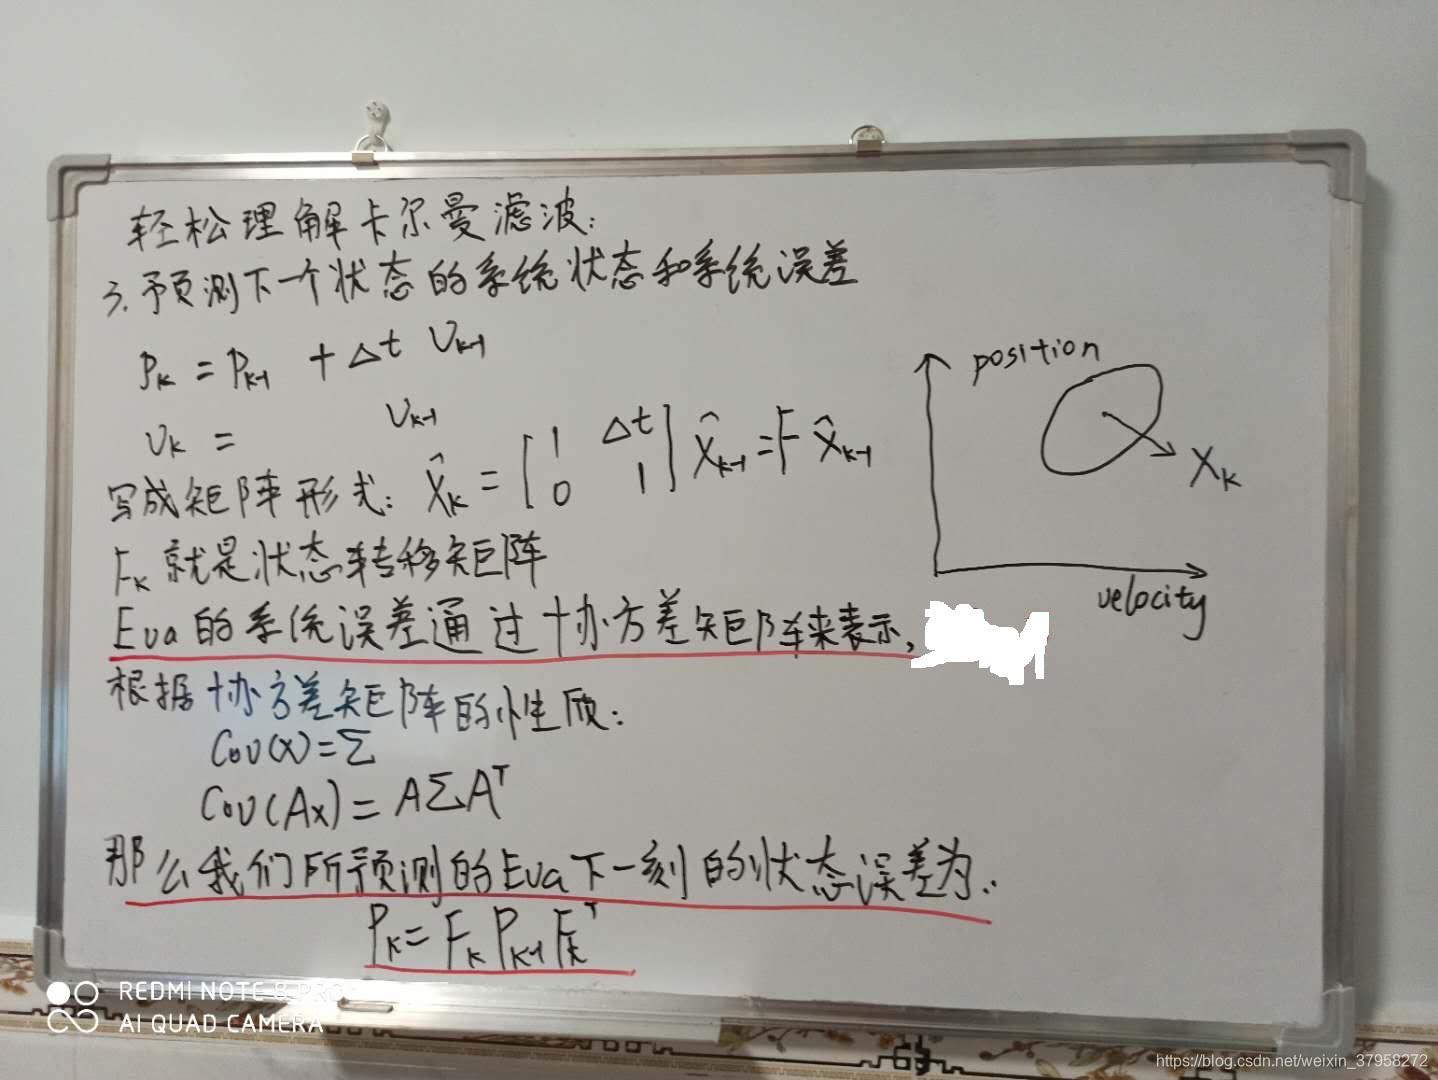 轻松理解卡尔曼滤波:
3.予页测下一个状态的系统状态和系统误差
Pk = Pk-1 + Δt Uk-1
Uk = Uk-1
写成矩阵形式: X̂k = [1 Δt 0 1] X̂k-1 = F X̂k-1
Fk 就是状态转移矩阵
Eva的系统误差通过协方差矩阵来表示,
根据协方差矩阵的性质:
Cov(x)=Σ
Cov(Ax)=AΣAᵀ
那么我们所预测的Eva下一刻的状态误差为:
Pk = Fk Pk-1 Fkᵀ
position
Xk
velocity
REDMI NOTE 8 PRO
AI QUAD CAMERA
https://blog.csdn.net/weixin_37958272